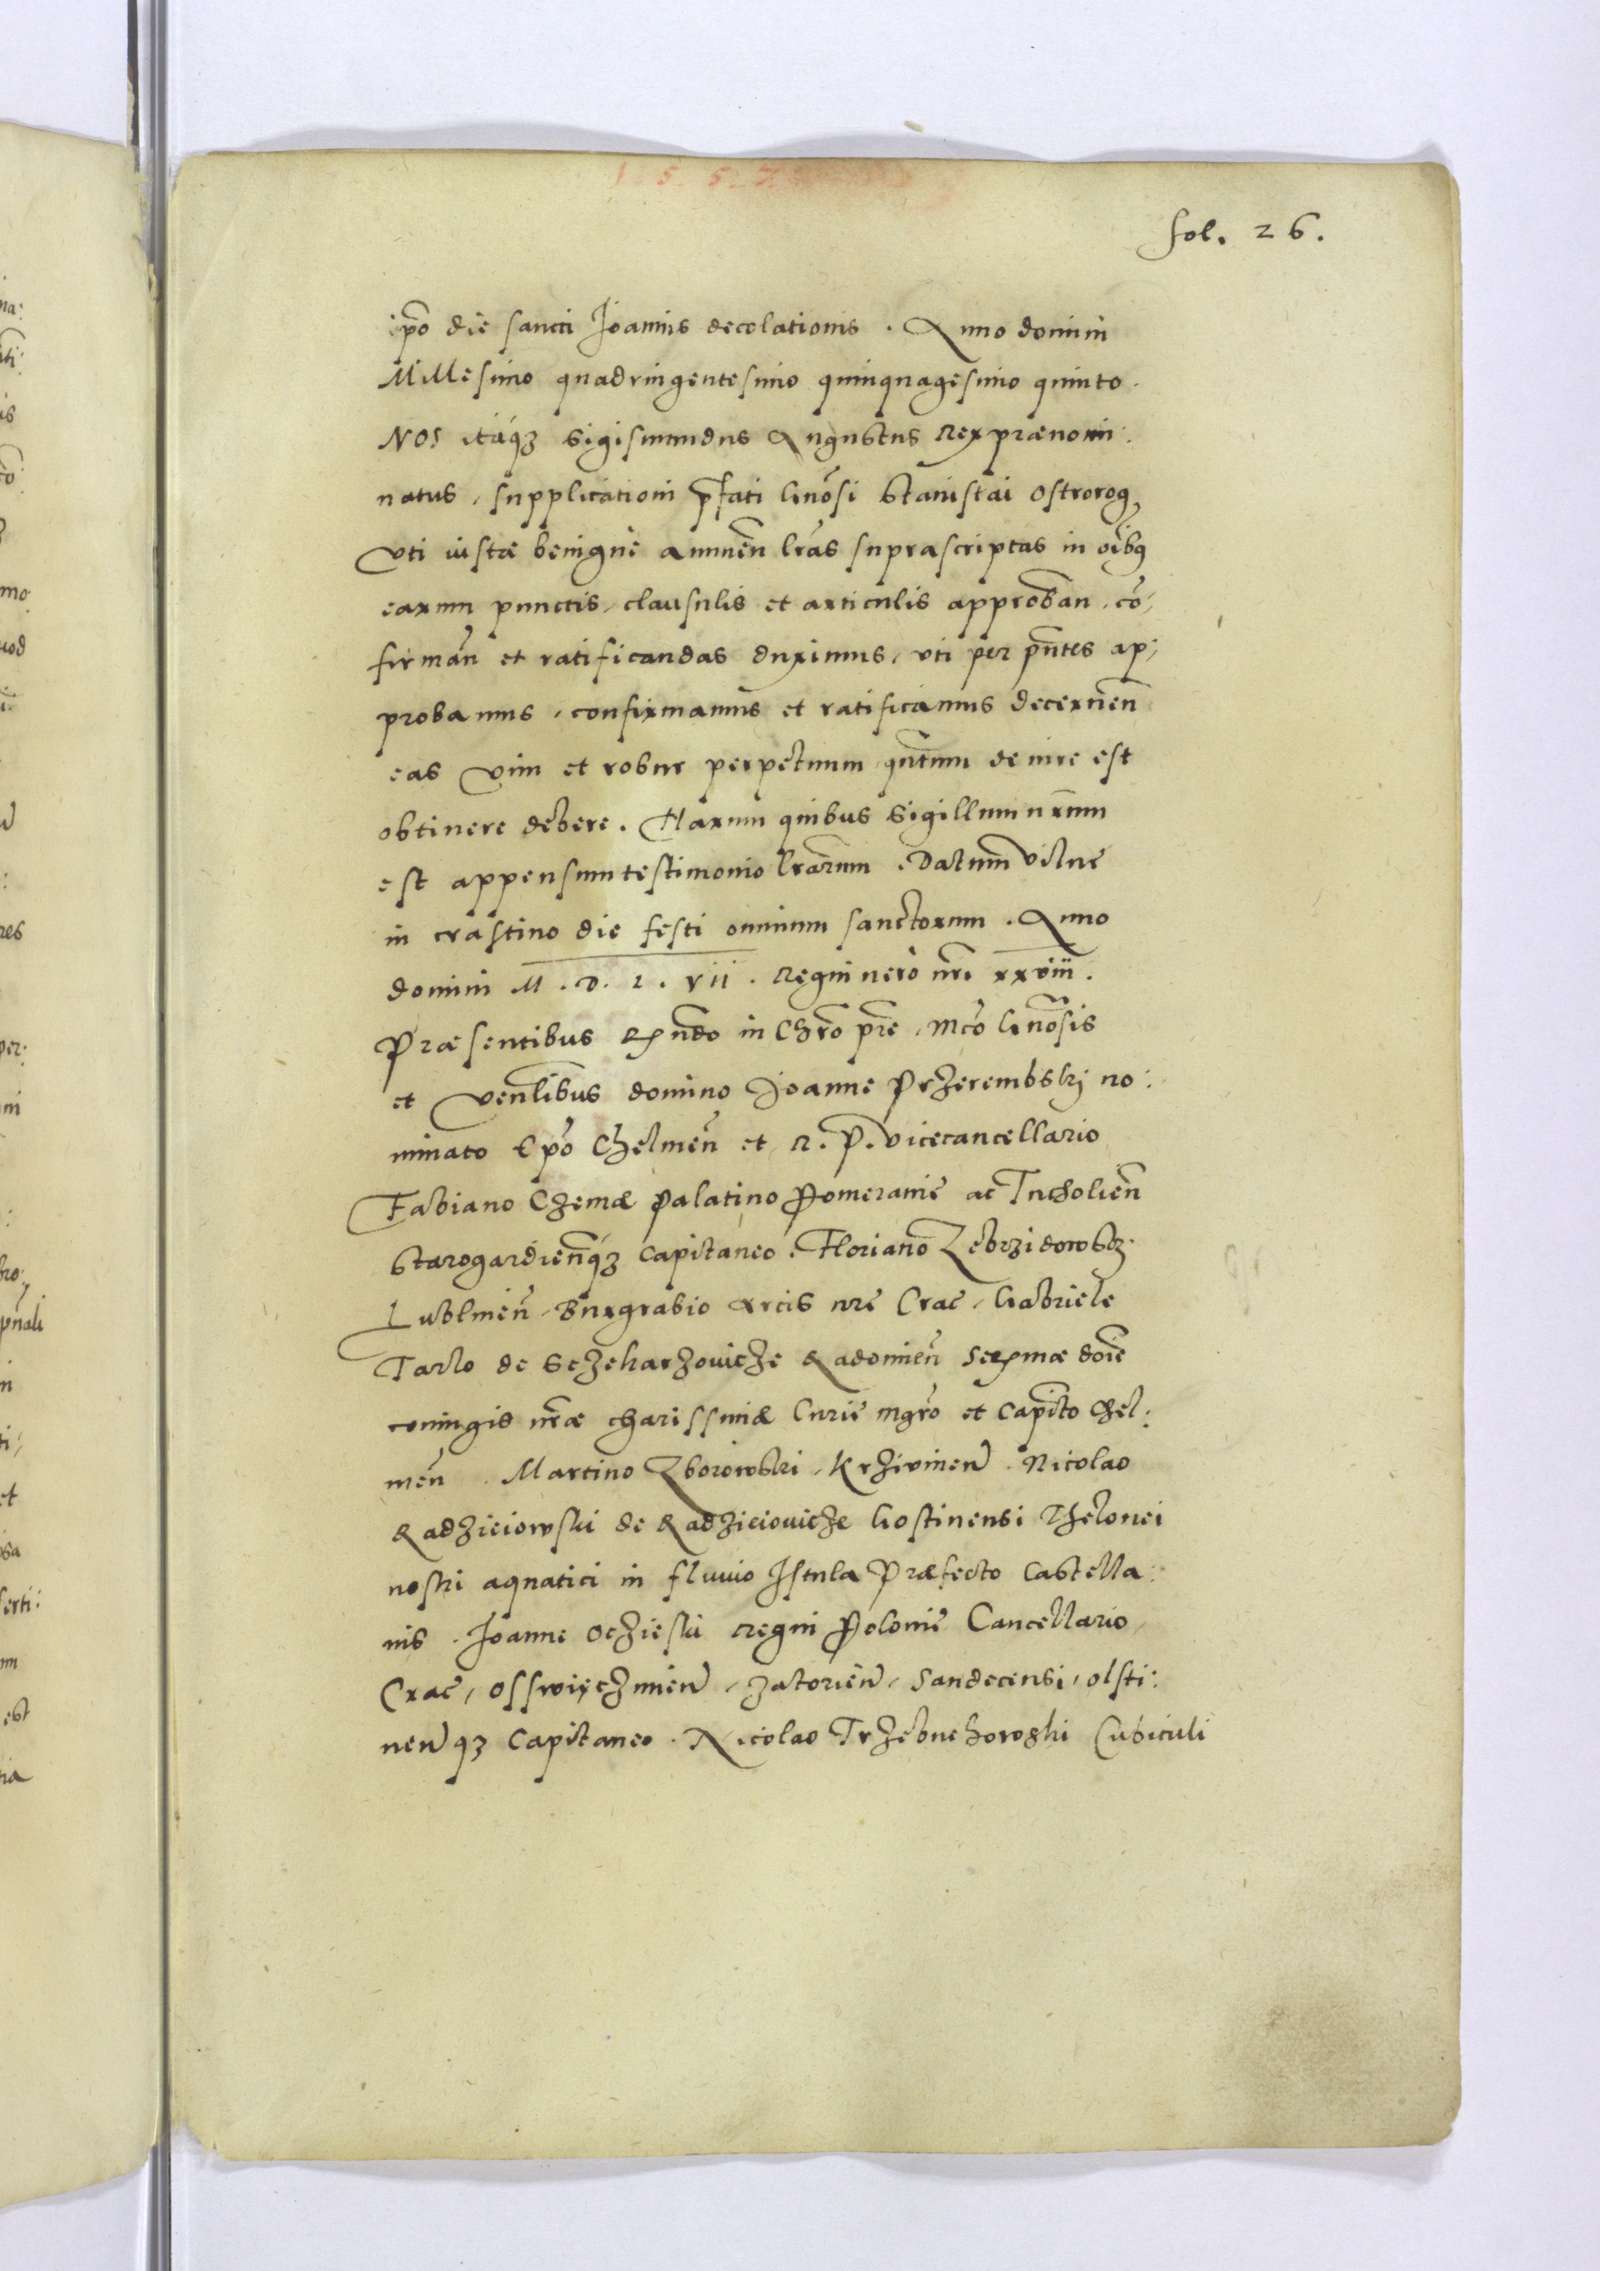 1 5 5 7
fol. 26.
ip̃o die sancti Joannis decolationis. Anno domini
Millesimo quadringentesimo quinquagesimo quinto.
NOS itaq₃ Sigismundus Augustus Rex prænomi:
natus, supplicationi p̃fati Gñosi Stanislai Ostrorog
uti iustæ benigne annueñ lr̃as suprascriptas in oĩbq
earum punctis, clausulis et articulis approbañ, cõ:
firmañ et ratificandas duximus, uti per pñtes ap:
probamus, confirmamus et ratificamus decerneñ
eas vim et robur perpetuum qñtum de iure est
obtinere debere. Harum quibus sigillum nr̃um
est appensum testimonio lr̃arum. Datum Vilne
in crastino die festi omnium sanctorum. Anno
domini M. D. L. VII. Regni vero nr̃i xxviii.
Præsentibus Rñdo in Chrõ pr̃e, Mco Gñosis
et Venlibus domino Joanne Przerembskj no:
minato Ep̃o Chelmeñ et R. P. Vicecancellario
Fabiano Czemæ Palatino Pomeranie ac Tucholieñ
Starogardieñq₃ Capitaneo. Floriano Zebrzidowsk
Lublineñ, Burgrabio Arcis nr̃e Crac, Gabriele
Tarlo de Sczekarzovicze Radomieñ Serᵐæ doĩe
coniugis nr̃æ charissimæ Curie mgrõ et Capitõ Chel:
meñ. Martino Zborowski, Krzivineñ. Nicolao
Radzieiowski de Radzieiovicze Gostinensi Thelonei
nostri aquatici in fluvio Istula Præfecto Castella:
nis. Joanne Oczieski Regni Polonie Cancellario,
Crac, Osswięczimeñ, Zatorieñ, Sandecensi, Olsti:
neñq₃ Capitaneo. Nicolao Trzebuchowski Cubiculi